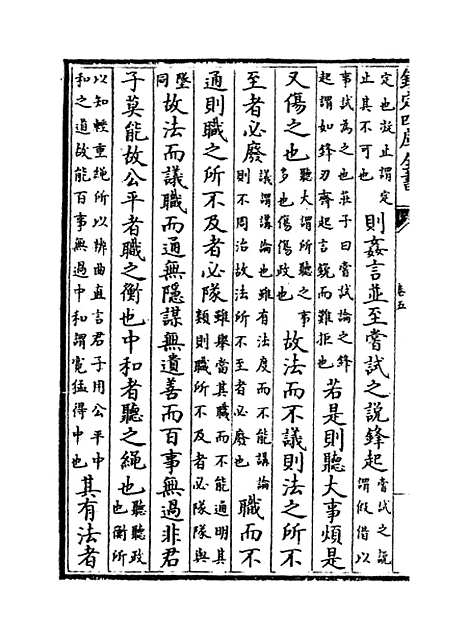 欽定四庫全書 卷五
定也凝止謂定止其不可也則姦言並至嘗試之說鋒起嘗試之說謂假借以
事試為之也莊子曰嘗試論之鋒起謂如鋒刃齊起言銳而難拒也若是則聽大事煩是
又傷之也聽大謂所聽之事多也傷傷政也故法而不議則法之所不
至者必廢議謂講論也雖有法度而不能講論則不周治故法所不至者必廢也職而不
通則職之所不及者必隊雖舉當其職而不能通明其類則職所不及者必隊隊與
墜同故法而議職而通無隱謀無遺善而百事無過非君
子莫能故公平者職之衡也中和者聽之繩也聽聽政也衡所
以知輕重繩所以辨曲直言君子用公平中和之道故能百事無過中和謂寬猛得中也其有法者